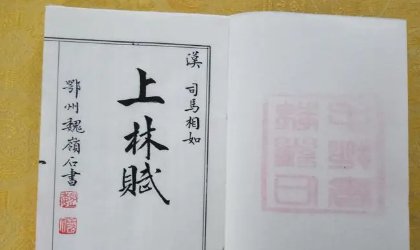 漢 司馬相如
上林賦
鄂州魏嶺石書